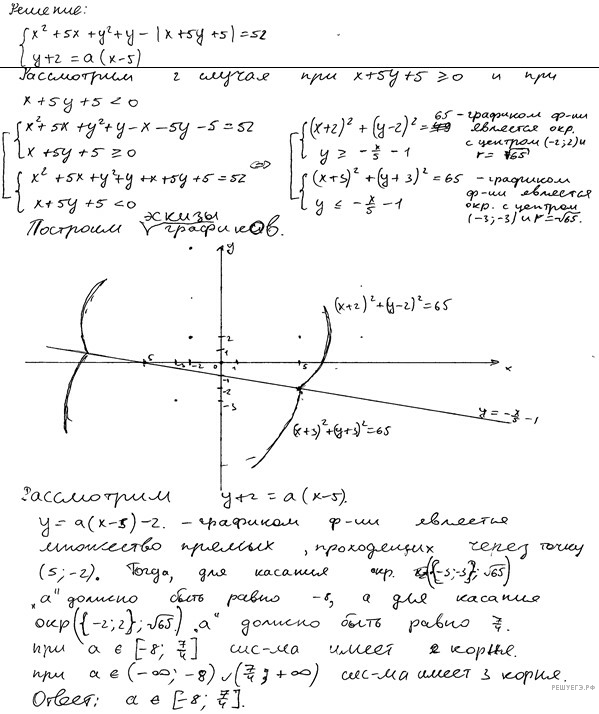 Решение:
{x² + 5x + y² + y - |x + 5y + 5| = 52
{y + 2 = a(x-5)
Рассмотрим 2 случая при x+5y+5 ≥ 0 и при
x + 5y + 5 < 0
[{x² + 5x + y² + y - x - 5y - 5 = 52
{x + 5y + 5 ≥ 0
{x² + 5x + y² + y + x + 5y + 5 = 52
{x + 5y + 5 < 0
⇔
[{(x+2)² + (y-2)² = 65 - графиком ф-ии
является окр.
с центром (-2;2) и
r = √65
{y ≥ -x/5 - 1
{(x+3)² + (y+3)² = 65 - графиком
ф-ии является
окр. с центром
(-3;-3) и r = √65.
{y ≤ -x/5 - 1
Построим эскизы графиков.
y
(x+2)² + (y-2)² = 65
2
1
5 -3 -2 0 1 5 x
-1
-2
-3
y = -x/5 - 1
(x+3)² + (y+3)² = 65
Рассмотрим y+2 = a(x-5).
y = a(x-5) - 2. - графиком ф-ии является
множество прямых, проходящих через точку
(5; -2). Тогда, для касания окр. ({-3;-3}; √65)
"a" должно быть равно -8, а для касания
окр({-2;2}; √65) "a" должно быть равно 7/4.
при a ∈ [-8; 7/4] сис-ма имеет 2 корня.
при a ∈ (-∞; -8) ∪ (7/4; +∞) сис-ма имеет 3 корня.
Ответ: a ∈ [-8; 7/4].
РЕШУЕГЭ.РФ